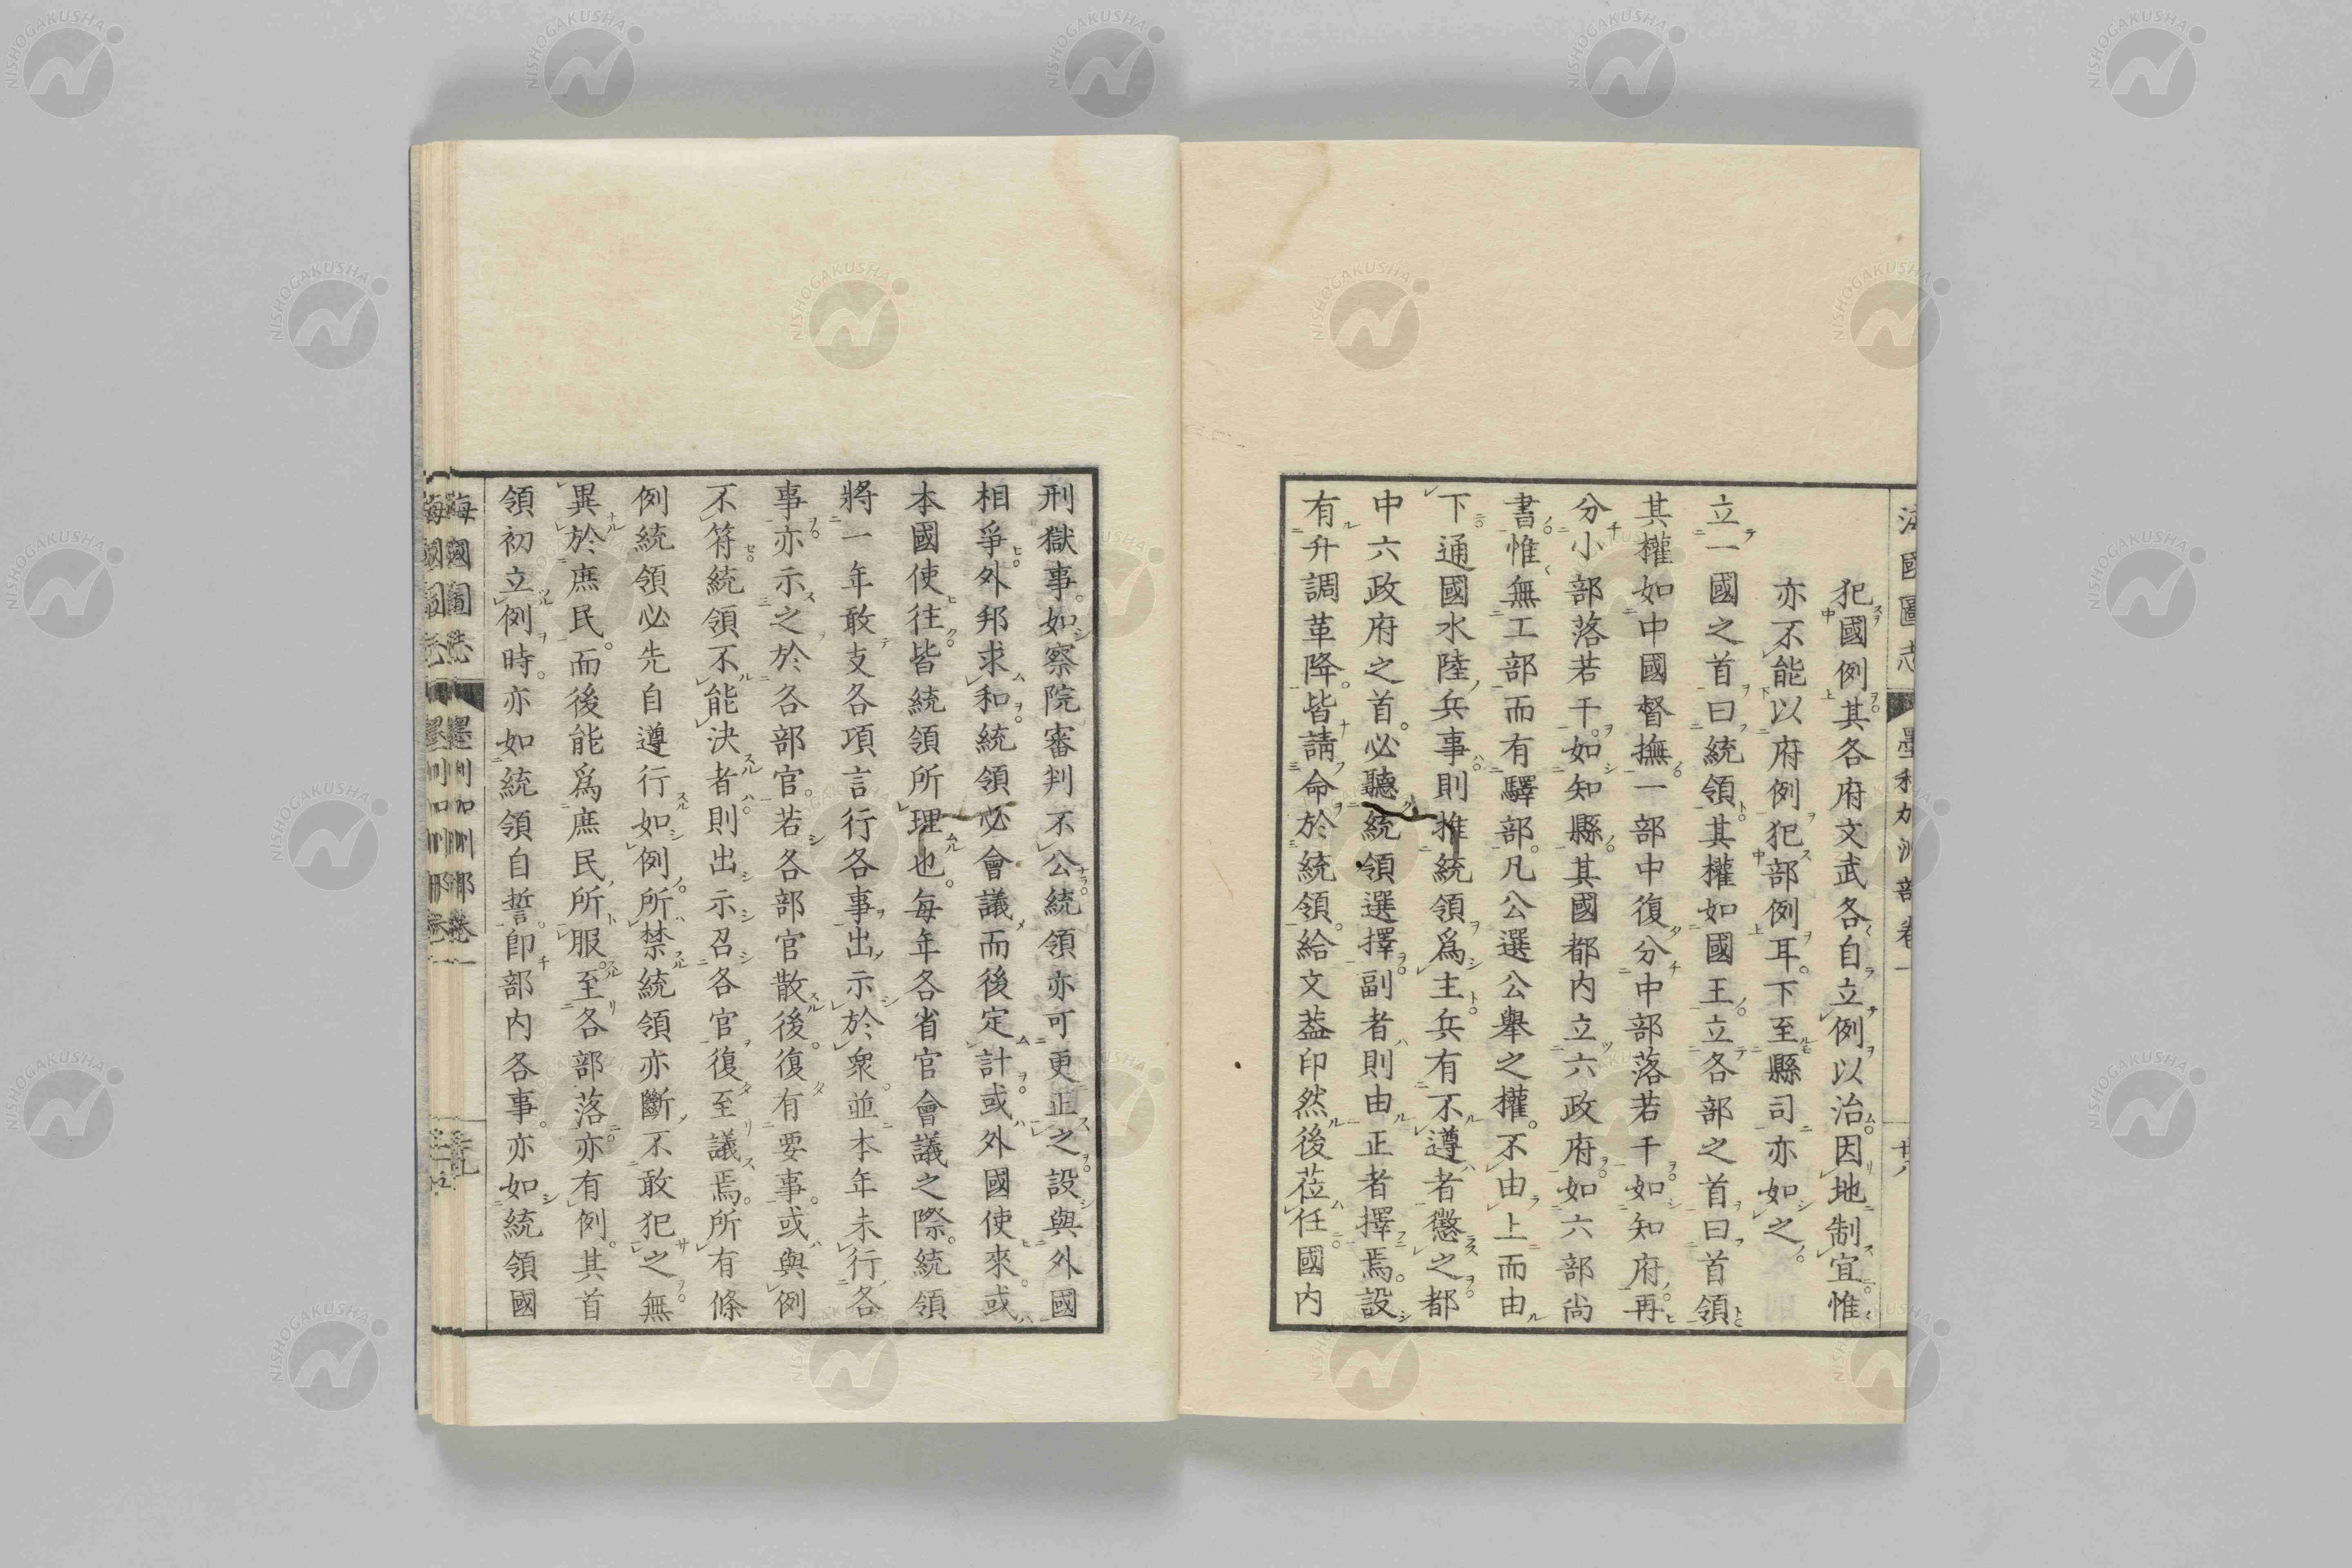 犯國例其各府文武各自立例以治因地制宜惟
亦不能以府例犯部例耳。下至縣司亦如之。
立一國之首曰統領其權如國王立各部之首曰首領
其權如中國督撫一部中復分中部落若干如知府再
分小部落若干如知縣其國都內立六政府如六部尚
書惟無工部而有驛部。凡公選公舉之權。不由上而由
下通國水陸兵事則推統領爲主兵有不遵者懲之都
中六政府之首。必聽統領選擇副者則由正者擇焉。設
有升調革降。皆請命於統領。給文葢印然後莅任國內
刑獄事。如察院審判不公統領亦可更正之設與外國
相爭外邦求和統領必會議而後定計或外國使來。或
本國使往皆統領所理也。每年各省官會議之際。統領
將一年敢支各項言行各事出示於衆。並本年未行各
事亦示之於各部官。若各部官散後。復有要事。或與例
不符統領不能決者則出示召各官復至議焉。所有條
例統領必先自遵行如例所禁統領亦斷不敢犯之無
異於庶民。而後能爲庶民所服至各部落亦有例。其首
領初立例時。亦如統領自誓。卽部內各事。亦如統領國
NISHOGAKUSHA